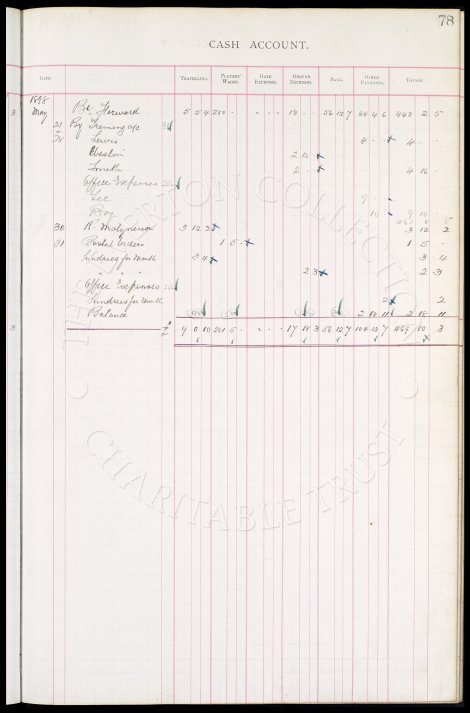 78
CASH ACCOUNT.
DATE. TRAVELLING. PLAYERS' WAGES. GATE EXPENSES. GROUND EXPENSES. BALL. OTHER PAYMENTS. TOTALS.
1898
3 May Bt. Forward 5 5 4 280 - - - - - 13 - - 56 12 7 88 4 6 443 2 5
31 By Training a/c
Lewis 4 - - 4 -
2 16
Smith 2 - - 4 16
Office Expenses
Lee 9 -
Roy 10 - 9 10
461 8 5
30 R. Molyneux 3 12 2 3 12 2
31 Postal Orders 1 5 - 1 5 -
Sundries for Month 3 4 3 4
" " " 2 3 2 3
Office Expenses
Sundries for Month 2 2
Balance 2 18 11 2 18 11
3 9 0 10 281 5 - - - - 17 18 3 56 12 7 104 13 7 469 10 3
THE EVERTON COLLECTION
CHARITABLE TRUST